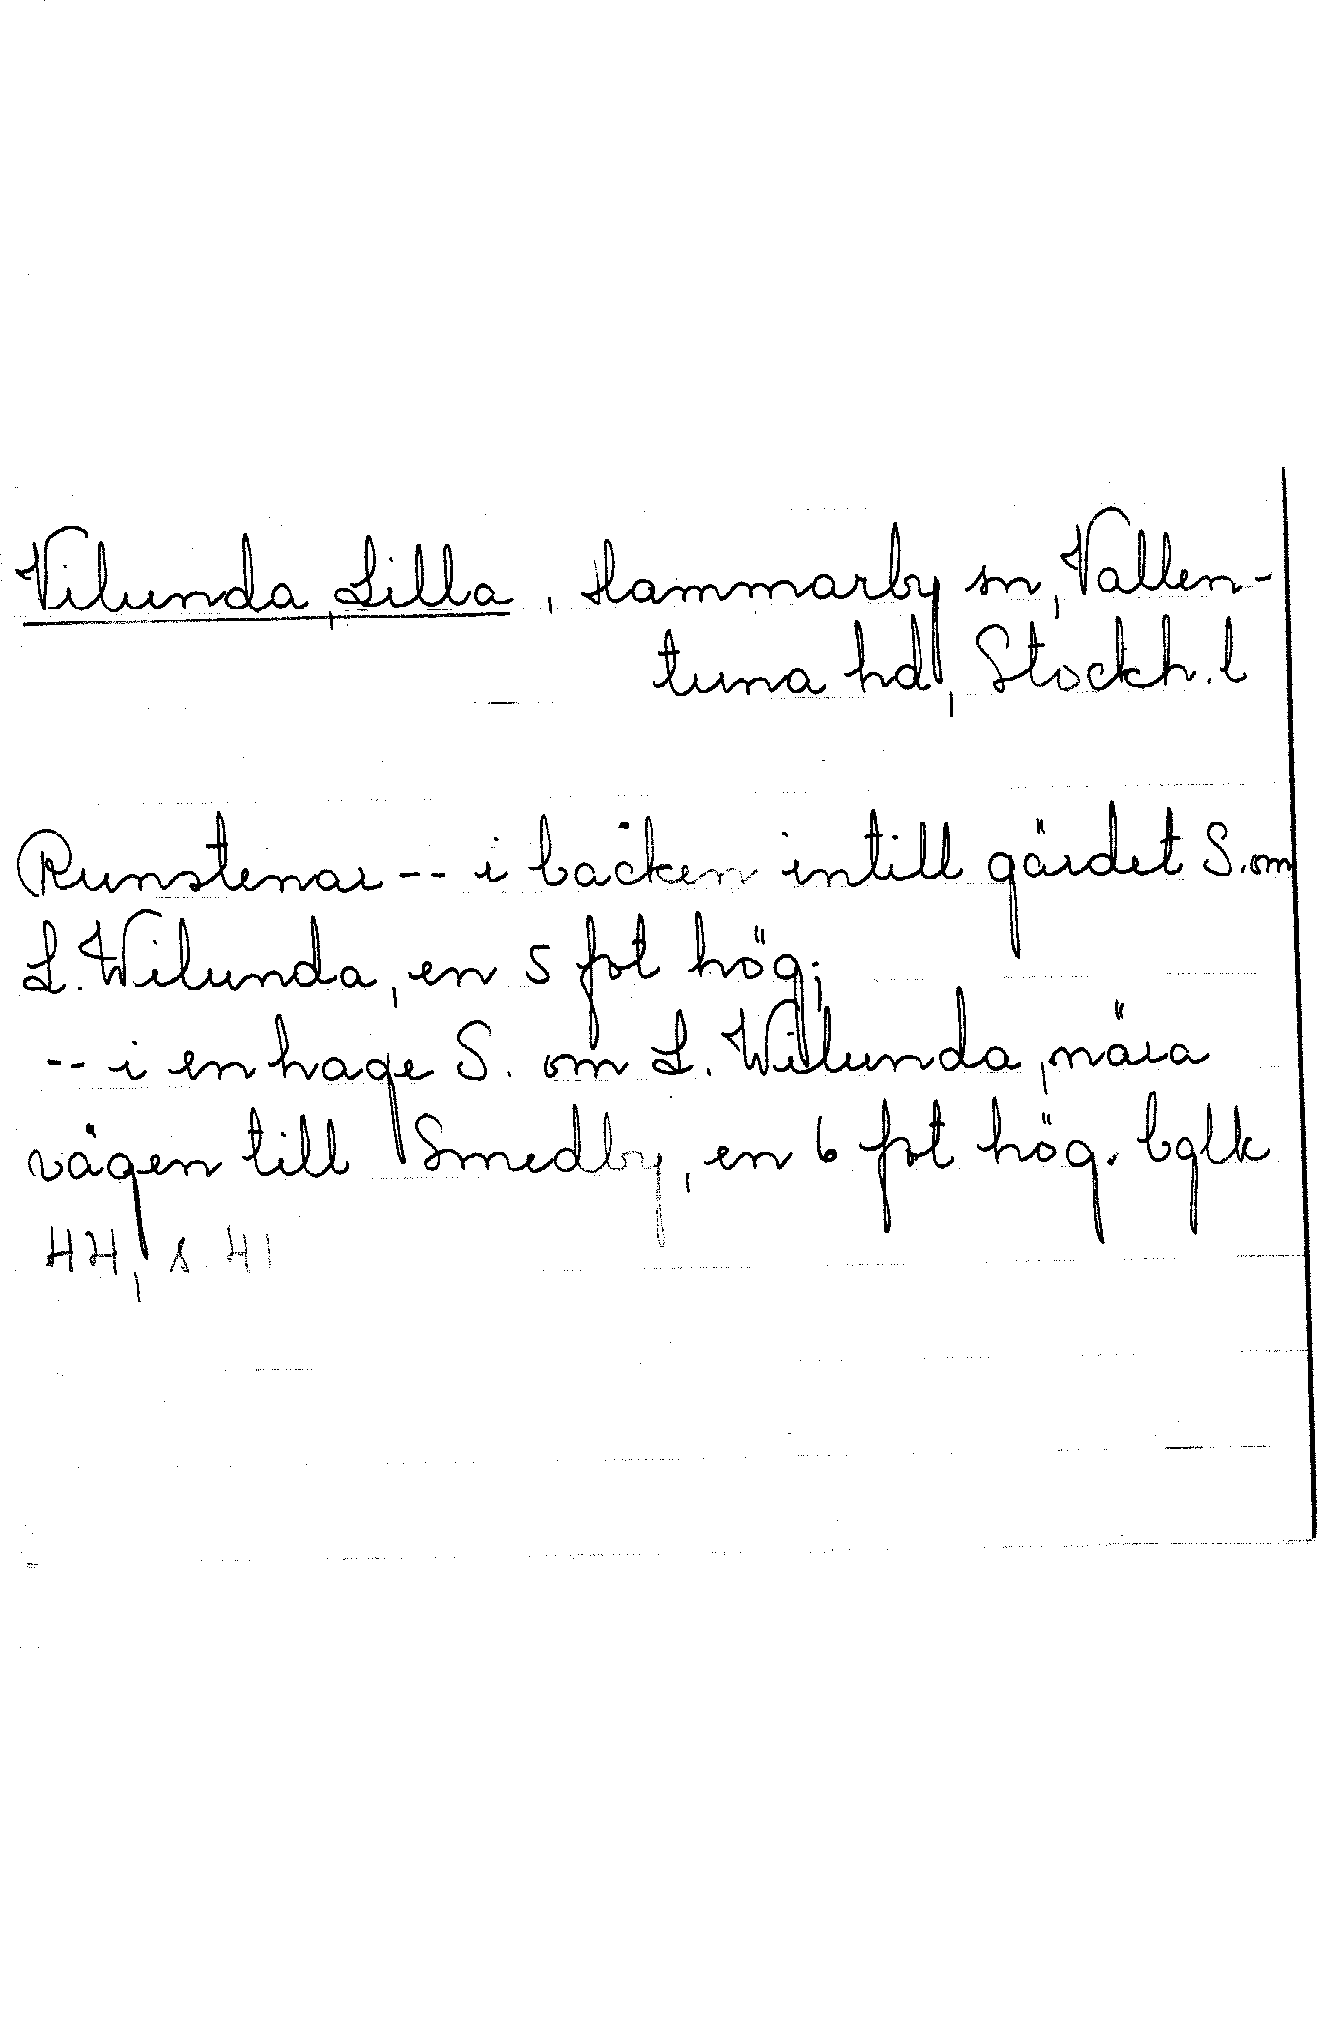 Vilunda, Lilla, Hammarby sn, Vallen-
tuna hd, Stockh. l
Runstenar -- i bäcken intill gärdet S. om
L. Wilunda, en 5 fot hög;
-- i en hage S. om L. Wilunda, nära
vägen till Smedby, en 6 fot hög. bglk
44, s 41